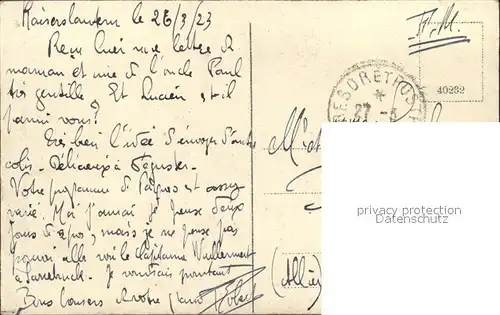 Kaiserslautern le 26/3/23
F.M.
Reçu hier une lettre de
maman et une de l'oncle Paul
très gentille. Et Lucien est-il
parmi vous?
TRESOR ET POSTES
*
27 - 3
40232
Très bien l'idée d'envoyer d'autres
colis. Délicieux à déguster.
Votre programme de Pâques est assez
varié. Moi j'aurai je pense deux
jours de repos, mais je ne pense pas
pouvoir aller voir le Capitaine Wuillermet
à Sarrebruck. Je voudrais pourtant
Bons baisers de votre grand
(Allier)
privacy protection
www.oldthing.com